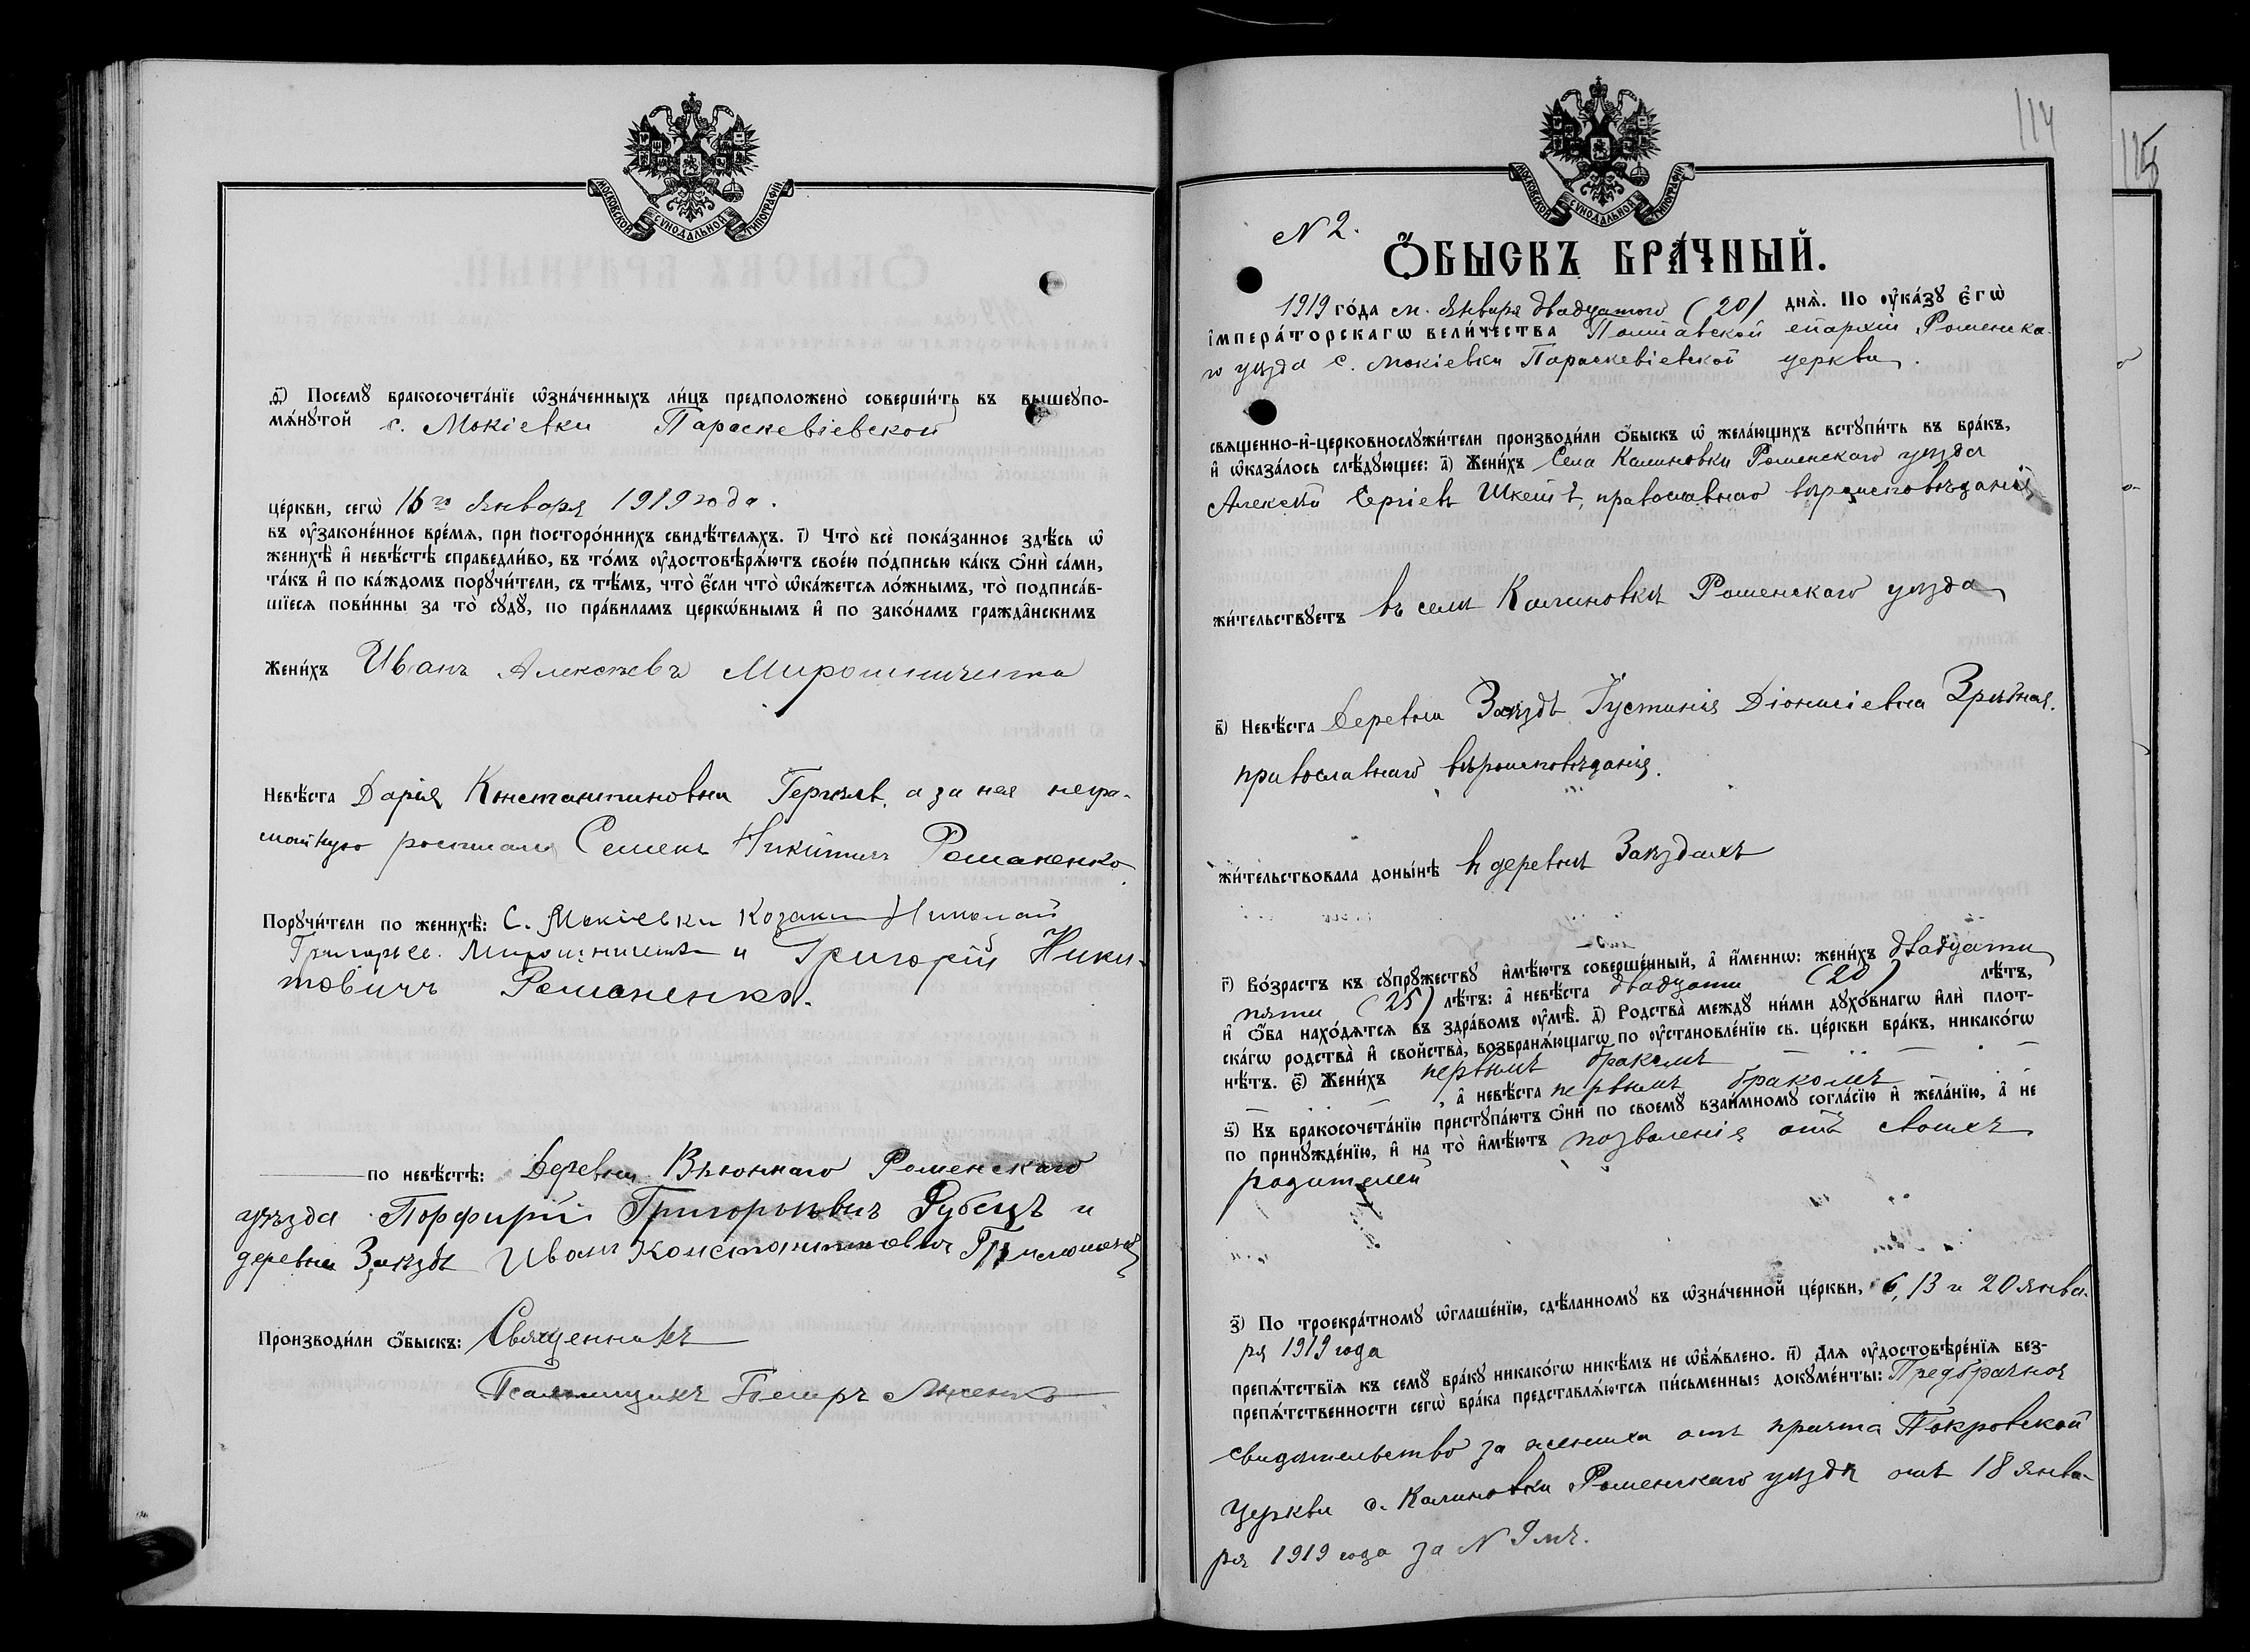 МОСКОВСКОЙ СѴНОДАЛЬНОЙ ТИПОГРАФІИ
ѳ҃) Посемꙋ бракосочета́нїе ѡ҆зна́ченныхъ ли́цъ предположено̀ соверши́ть въ вышеꙋпо-
мѧ́нꙋтой с. Мокіевки Параскевіевской
це́ркви, сегѡ̀ 16го Января 1919 года.
въ ᲂу҆законе́нное вре́мѧ, при посторо́ннихъ свидѣ́телѧхъ. і҃) Что̀ всѐ пока́занное здѣ́сь ѡ҆
женихѣ̀ и҆ невѣ́стѣ справедли́во, въ то́мъ ᲂу҆достовѣрѧ́ютъ свое́ю по́дписью ка́къ ѻ҆нѝ са́ми,
та́къ и҆ по ка́ждомъ порꙋчи́тели, съ тѣ́мъ, что̀ є҆́сли что̀ ѡ҆ка́жетсѧ ло́жнымъ, то̀ подписа́в-
шїесѧ пови́нны за то̀ сꙋдꙋ̀, по пра́виламъ церкѡ́внымъ и҆ по зако́намъ гражда̂нскимъ
Жени́хъ Иванъ Алексѣевъ Мирошниченко
Невѣ́ста Дарія Константиновна а за нея негра-
мотную Семенъ Никитичъ Романенко
Порꙋчи́тели по женихѣ̀: С. Мокіевки Козаки Николай
Григорьев. Мирошниченко и Григорій Ники-
товичъ Романенко.
по невѣ́стѣ: Деревни Вьюннаго Роменскаго
уѣзда Порфирій Григорьевич Рубецъ и
деревни Заѣздъ Иванъ Константиновичъ
Производи́ли ѻ҆́быскъ: Священникъ
Псаломщикъ Петръ
114
115
МОСКОВСКОЙ СѴНОДАЛЬНОЙ ТИПОГРАФІИ
N 2.
Ѻ҆́БЫСКЪ БРА́ЧНЫЙ.
1919 го́да м. Января двадцатого (20) днѧ̀. По ᲂу҆ка́зꙋ є҆гѡ̀
і҆мпера́торскагѡ вели́чества Полтавской епархіи Роменска-
го уѣзда с. Мокіевки Параскевіевской церкви.
свѧще́нно-и҆-церковнослꙋжи́тели производи́ли ѻ҆́быскъ ѡ҆ жела́ющихъ встꙋпи́ть въ бра́къ,
и҆ ѡ҆каза́лось слѣ́дꙋющее: а҃) Жени́хъ Села Калиновки Роменскаго уѣзда
Алексѣй Сергіевъ православнаго вѣроисповѣданія
жи́тельствꙋетъ въ селѣ Калиновкѣ Роменскаго уѣзда
в҃) Невѣ́ста Деревни Заѣздъ Іустинія Діонисіевна
православнаго вѣроисповѣданія.
жи́тельствовала доны́нѣ въ деревнѣ Заѣздахъ
г҃) Во́зрастъ къ сꙋпрꙋ́жествꙋ и҆мѣ́ютъ соверше́нный, а҆ и҆́менѡ: жени́хъ двадцати
пяти (25) лѣ́тъ: а҆ невѣ́ста двадцати (20) лѣ́тъ,
и҆ ѻ҆́ба нахо́дѧтсѧ въ здра́вомъ ᲂу҆мѣ̀. д҃) Родства̀ междꙋ̀ ни́ми дꙋхо́внагѡ и҆лѝ плот-
ска́гѡ родства̀ и҆ свойства̀, возбранѧ́ющагѡ по ᲂу҆становле́нїю св. це́ркви бра́къ, никако́гѡ
нѣ́тъ. є҃) Жени́хъ первымъ бракомъ
, а҆ невѣ́ста первымъ бракомъ
ѕ҃) Къ бракосочета́нїю пристꙋпа́ютъ ѻ҆нѝ по своемꙋ̀ взаи́мномꙋ согла́сїю и҆ жела́нїю, а҆ не
по принꙋжде́нїю, и҆ на то̀ и҆мѣ́ютъ позволенія отъ своихъ
родителей
з҃) По троекра́тномꙋ ѡ҆глаше́нїю, сдѣ́ланномꙋ въ ѡ҆зна́ченной це́ркви, 6, 13 и 20 янва-
ря 1919 года
препѧ́тствїѧ къ семꙋ̀ бра́кꙋ никако́гѡ никѣ́мъ не ѡ҆б̾ѧ́влено. и҃) Длѧ ᲂу҆достовѣре́нїѧ без-
препѧ́тственности сегѡ̀ бра́ка представлѧ́ютсѧ пи́сьменные докꙋме́нты: Предбрачное
свидѣтельство за жениха отъ причта Покровской
церкви с. Калиновки Роменскаго уѣзда отъ 18 янва-
ря 1919 года за N 9мъ.